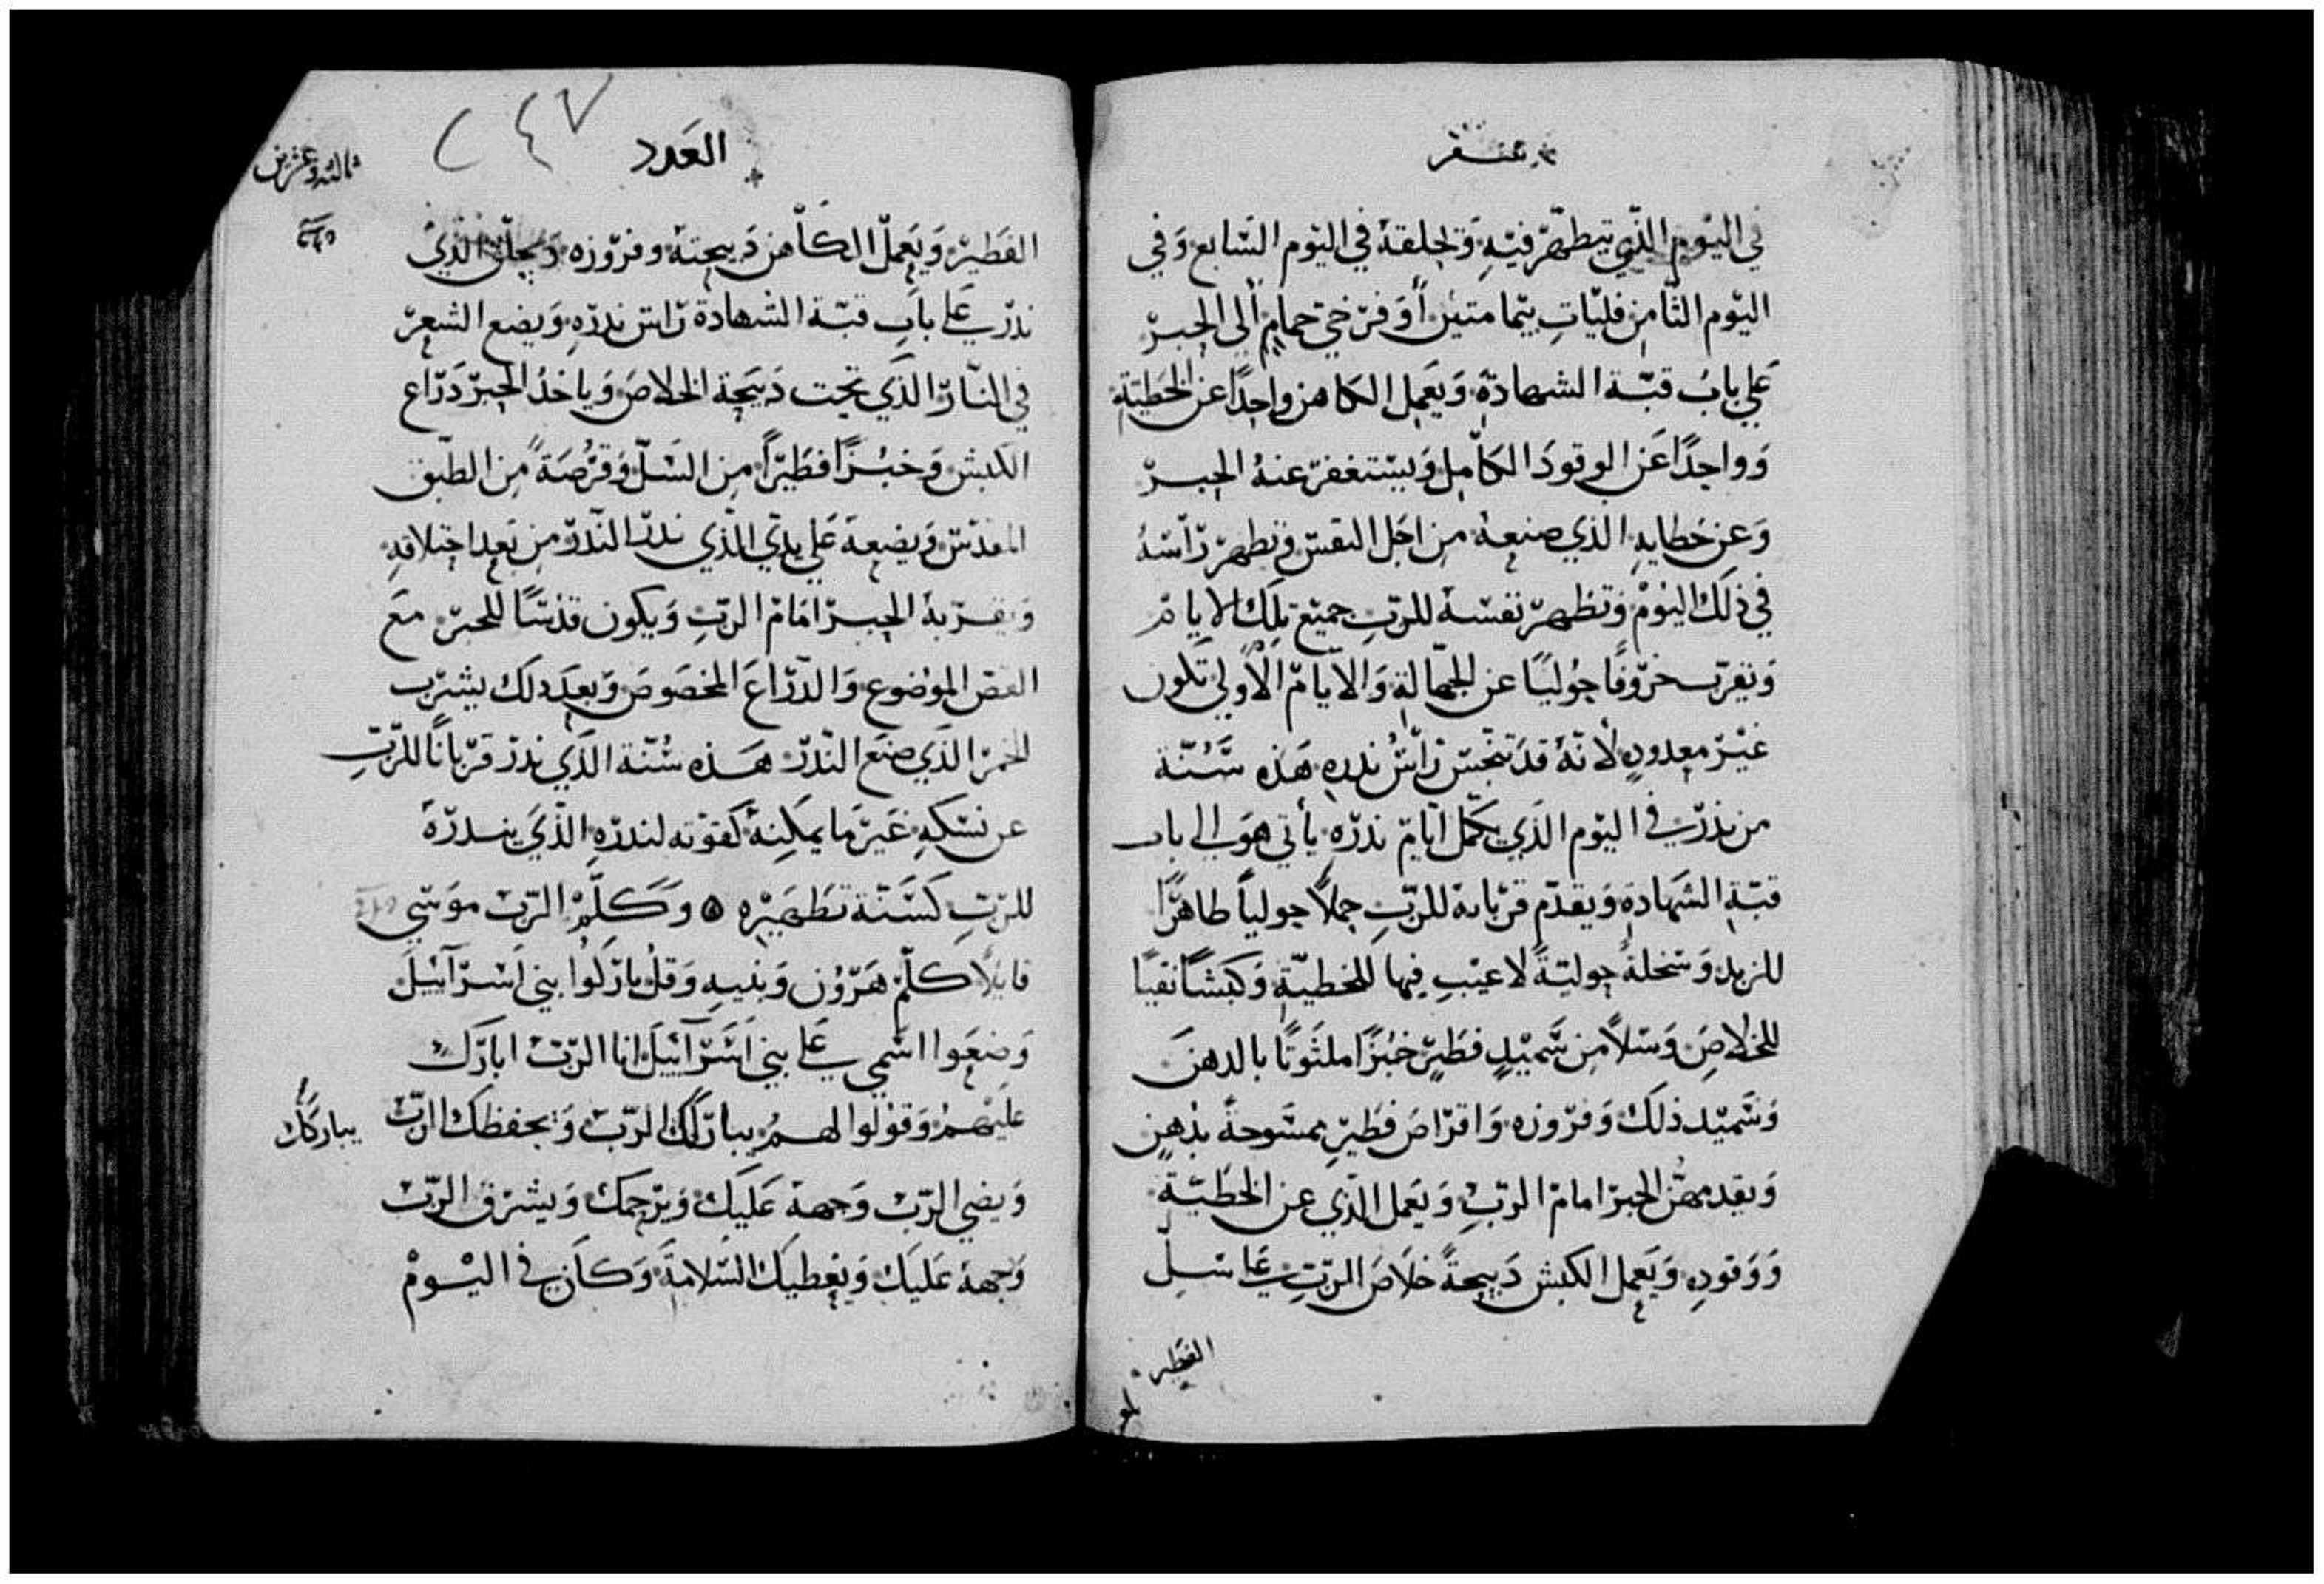 سفر
في اليَوم الذّي تيطهّر فيَهِ وَتحلقهُ في اليَوم السَّابع وَفي
اليَوم الثّامِن فليَاتِ بيَمامتيْن أوَ فرّخيْ حمامٍ الى الحِبرّ
عَلي بابُ قبّة الشهادةِ وَيعَمِل الكاهن واحِداً عَن الخطيّة
وَواحِدًا عَن الوقودَ الكاّمِل وَيسَتغفرّ عنهُ الحِبرّ
وَعن خطايهِ الذي صنعهُ مِن اجَل النفسّ وَتطهرّ رّاسَهُ
في ذلِك اليَومْ وَتطهرّ نفسَهُ للرّبِ جميَع تِلك الايامّ
وَتقرّب خرّوفًا حَوليَّا عن الجهالةِ وَالايَامّ الاوَلي تكون
غيَرّ معدودٍ لأنهُ قدَ تنجّسّ رّاسُّ ندرهِ هَذهِ سَّنُّة
من نذرّ في اليوَم الذَي يكمّل ايَامّ ندرّهِ يأتي هوَ الي باب
قبّة الشهَادةِ وَيقدّم قرّبانهُ للرّبِ حِملاً حوليَاً طاهرًّا
للزبد وَسَخلةً حِوليَةً لاعيَبِ فيها للخطيّةِ وَكبَشاً نقيًا
للخلاصِ وَسَلاًّ مِن سَّميْدٍ فطَيرٍّ خبُزًا ملتوَتًا بالدهنَ
وَسَّميْد ذلَكَ وَفرّوزه وَاقرّاصَ فطَيرٍّ ممسّوحةً بدُهنٍ
وَيقدمهّنُ الحبرّ امامّ الرّبِ وَيعَمل الذّي عن الخطَيّةِ
وَوَقودِهِ وَيعَمِل الكبش دَبيحةً خلاَصَ الرّبِ عَلي سَلِّ
الفطير
العَدد
٢٤٧
ثالثه وعشرين
الفَطِيرّ وَيَعمِلّ الكاَهن دَبيحِتهُ وفرّوزه وَيحلق الذّيْ
ندرّ عَلي بابِ قبّة الشهادةَ رّاسّ ندرّهِ وَيضع الشعرّ
في النّارّ الذّي تحت دَبيَحِة الخلاصَ وَياخذُ الحِبرّ دَرّاع
الكبش وَخبُزًا فطَيرًّا مِن السَلّ وَقرّصَةً مِن الطبَق
المقدسّ وَيضعهَ عَلي يدَي الذّي ندرّ الندّرّ مِن بَعد اختلاقهِ
وَيقرّبهُ الحِبرّ امَامّ الرّبِ وَيكون قدسًّا للحبرّ مَع
القصّ الموَضوع وَالدّرّاعَ المخصَوصَ وَبعدَ دلَك يشرّب
الخمرّ الذَي صنعَ الندّرّ هَذه سُنّة الذَي ندرّ قرّبانًا للرّبِ
عن نسَكهِ غيَرّ ما يمكِنهُ كَقوَته لندرّهِ الذَّيَ ينَدرّهُ
للرّبِ كسَنّة تطهَيرْهِ ۝ وَكَلّمْ الرّبْ موَسَي
قايلاً كلّمّ هَرّوُن وَبنيهِ وَقلْ بارَكوُا بني اَسْرّآئيل
وَضعَوا اسَمي عَلي بني اَسْرّآئيل انا الرّبْ ابارّك
عَليهمُ وَقولوُا لهمُ يبارّكك الرّبْ وَيحفظك الرّبْ
يباركك
وَيضي الرّبْ وَجههُ عَليكَ وَيرّحِمكَ وَيشرّق الرّبْ
وَجههُ عَليَكَ وَيعُطيكَ السّلامةَ وَكاَن في اليَومْ